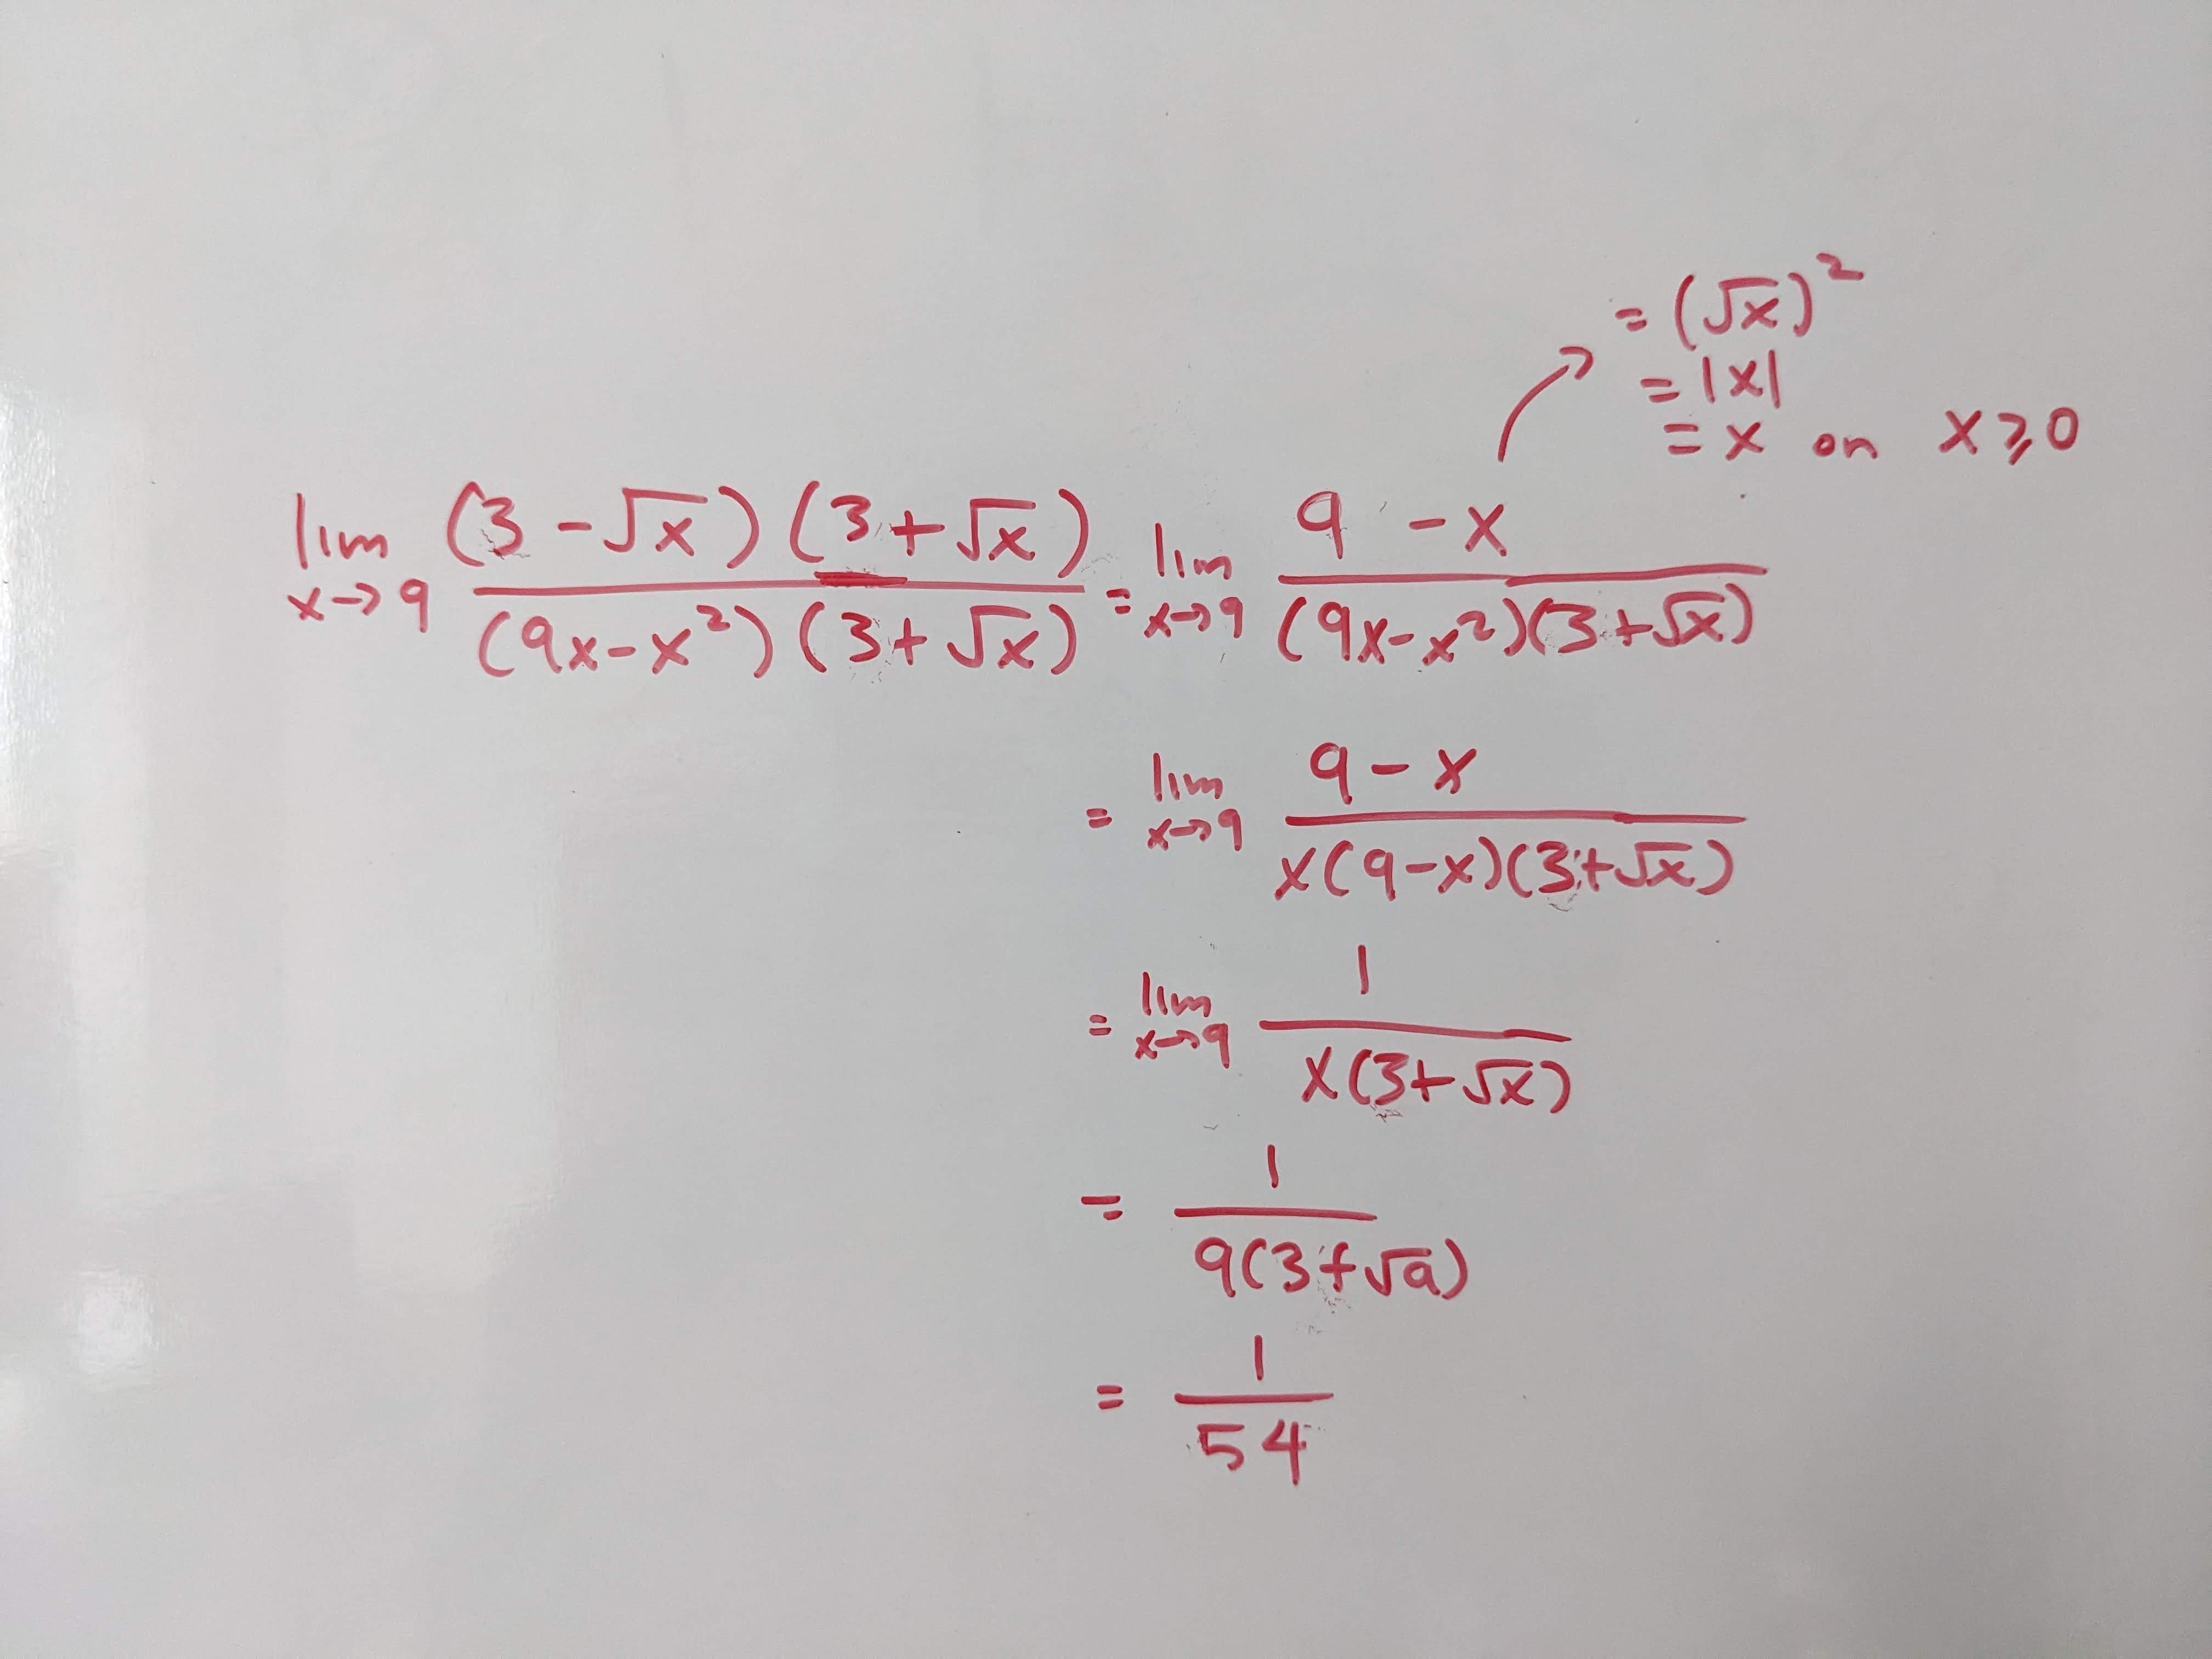 = (√x)²
= |x|
= x on x ⩾ 0
lim x→9 (3 - √x)(3 + √x) / (9x - x²)(3 + √x) = lim x→9 9 - x / (9x - x²)(3 + √x)
= lim x→9 9 - x / x(9 - x)(3 + √x)
= lim x→9 1 / x(3 + √x)
= 1 / 9(3 + √9)
= 1 / 54